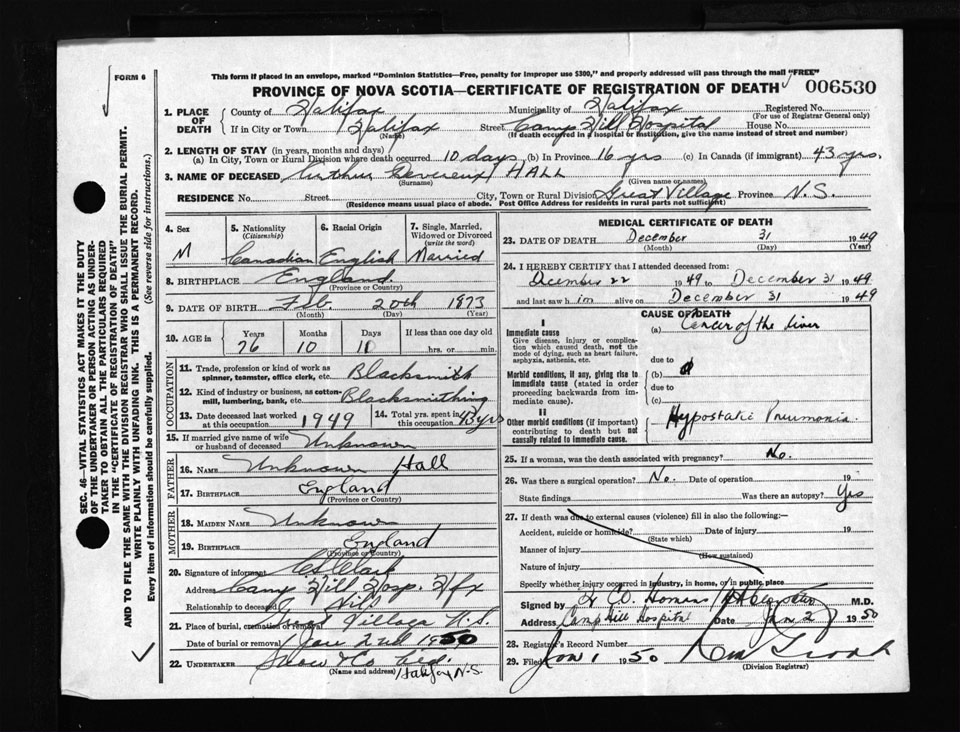 FORM 6
This form if placed in an envelope, marked "Dominion Statistics—Free, penalty for improper use $300," and properly addressed will pass through the mail "FREE"
PROVINCE OF NOVA SCOTIA—CERTIFICATE OF REGISTRATION OF DEATH
006530
1. PLACE OF DEATH
County of Halifax Municipality of Halifax Registered No.
(For use of Registrar General only)
If in City or Town Halifax Street Camp Hill Hospital House No.
(Name) (If death occurred in a hospital or institution, give the name instead of street and number)
2. LENGTH OF STAY (in years, months and days)
(a) In City, Town or Rural Division where death occurred 10 days (b) In Province 16 yrs (c) In Canada (if immigrant) 43 yrs.
3. NAME OF DECEASED Arthur Devereux HALL
(Surname) (Given name or names)
RESIDENCE No. Street City, Town or Rural Division Great Village Province N.S.
(Residence means usual place of abode. Post Office Address for residents in rural parts not sufficient)
4. Sex 5. Nationality (Citizenship) 6. Racial Origin 7. Single, Married, Widowed or Divorced (write the word)
M Canadian English Married
8. BIRTHPLACE England
(Province or Country)
9. DATE OF BIRTH Feb. 20th 1873
(Month) (Day) (Year)
10. AGE in Years Months Days If less than one day old
76 10 11 hrs. or min.
OCCUPATION
11. Trade, profession or kind of work as spinner, teamster, office clerk, etc. Blacksmith
12. Kind of industry or business, as cotton-mill, lumbering, bank, etc. Blacksmithing
13. Date deceased last worked at this occupation 1949 14. Total yrs. spent in this occupation yrs
15. If married give name of wife or husband of deceased Unknown
FATHER
16. NAME Unknown Hall
17. BIRTHPLACE England
(Province or Country)
MOTHER
18. MAIDEN NAME Unknown
19. BIRTHPLACE England
(Province or Country)
20. Signature of informant Clark
Address Camp Hill Hosp. Hfx
Relationship to deceased Nil
21. Place of burial, cremation or removal Great Village N.S.
Date of burial or removal Jan 2nd 1950
22. UNDERTAKER Snow & Co Ltd.
(Name and address) Halifax N.S.
MEDICAL CERTIFICATE OF DEATH
23. DATE OF DEATH December 31 1949
(Month) (Day) (Year)
24. I HEREBY CERTIFY that I attended deceased from:
December 22 1949 to December 31 1949
and last saw him alive on December 31 1949
CAUSE OF DEATH
I
Immediate cause (a) Cancer of the liver
Give disease, injury or complication which caused death, not the mode of dying, such as heart failure, asphyxia, asthenia, etc.
due to
Morbid conditions, if any, giving rise to immediate cause (stated in order proceeding backwards from immediate cause).
(b)
due to
(c)
II
Other morbid conditions (if important) contributing to death but not causally related to immediate cause.
Hypostatic Pneumonia
25. If a woman, was the death associated with pregnancy? No.
26. Was there a surgical operation? No. Date of operation 19
State findings Was there an autopsy? Yes
27. If death was due to external causes (violence) fill in also the following:—
Accident, suicide or homicide? Date of injury 19
(State which)
Manner of injury
(How sustained)
Nature of injury
Specify whether injury occurred in industry, in home, or in public place
Signed by M.D.
Address Camp Hill Hospital Date Jan 2 1950
28. Registrar's Record Number
29. Filed Jan 1 1950
(Division Registrar)
SEC. 46—VITAL STATISTICS ACT MAKES IT THE DUTY
OF THE UNDERTAKER OR PERSON ACTING AS UNDER-
TAKER TO OBTAIN ALL THE PARTICULARS REQUIRED
IN THE "CERTIFICATE OF REGISTRATION OF DEATH"
AND TO FILE THE SAME WITH THE DIVISION REGISTRAR WHO SHALL ISSUE THE BURIAL PERMIT.
WRITE PLAINLY WITH UNFADING INK. THIS IS A PERMANENT RECORD.
Every item of information should be carefully supplied. (See reverse side for instructions.)